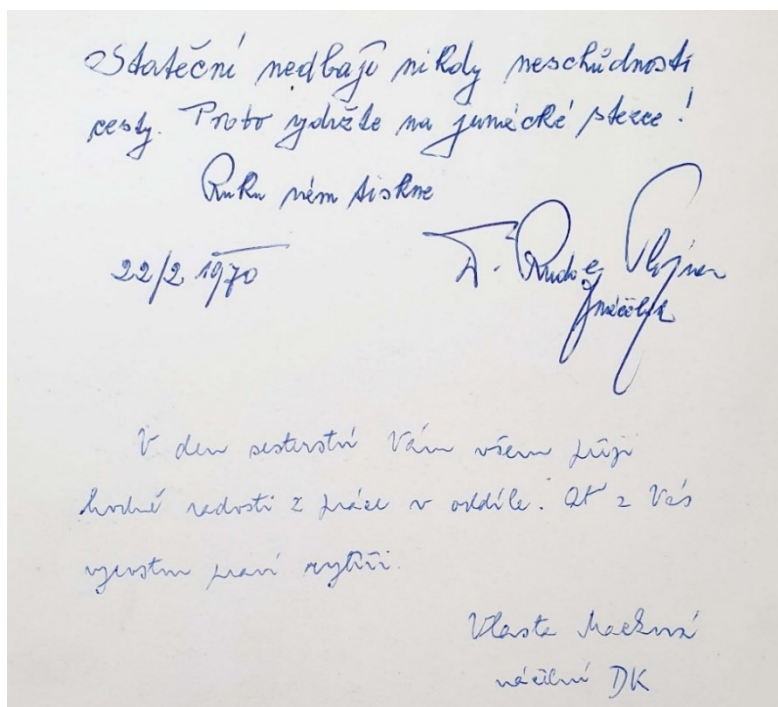 Stateční nedbají nikdy neschůdnosti
cesty. Proto vydržte na junácké stezce!
Ruku vám tiskne
22/2 1970
Dr. Rudolf Plajner
náčelník
V den sesterství Vám všem přeji
hodně radosti z práce v oddíle. Ať z Vás
vyrostou praví rytíři.
Vlasta Macková
náčelní DK